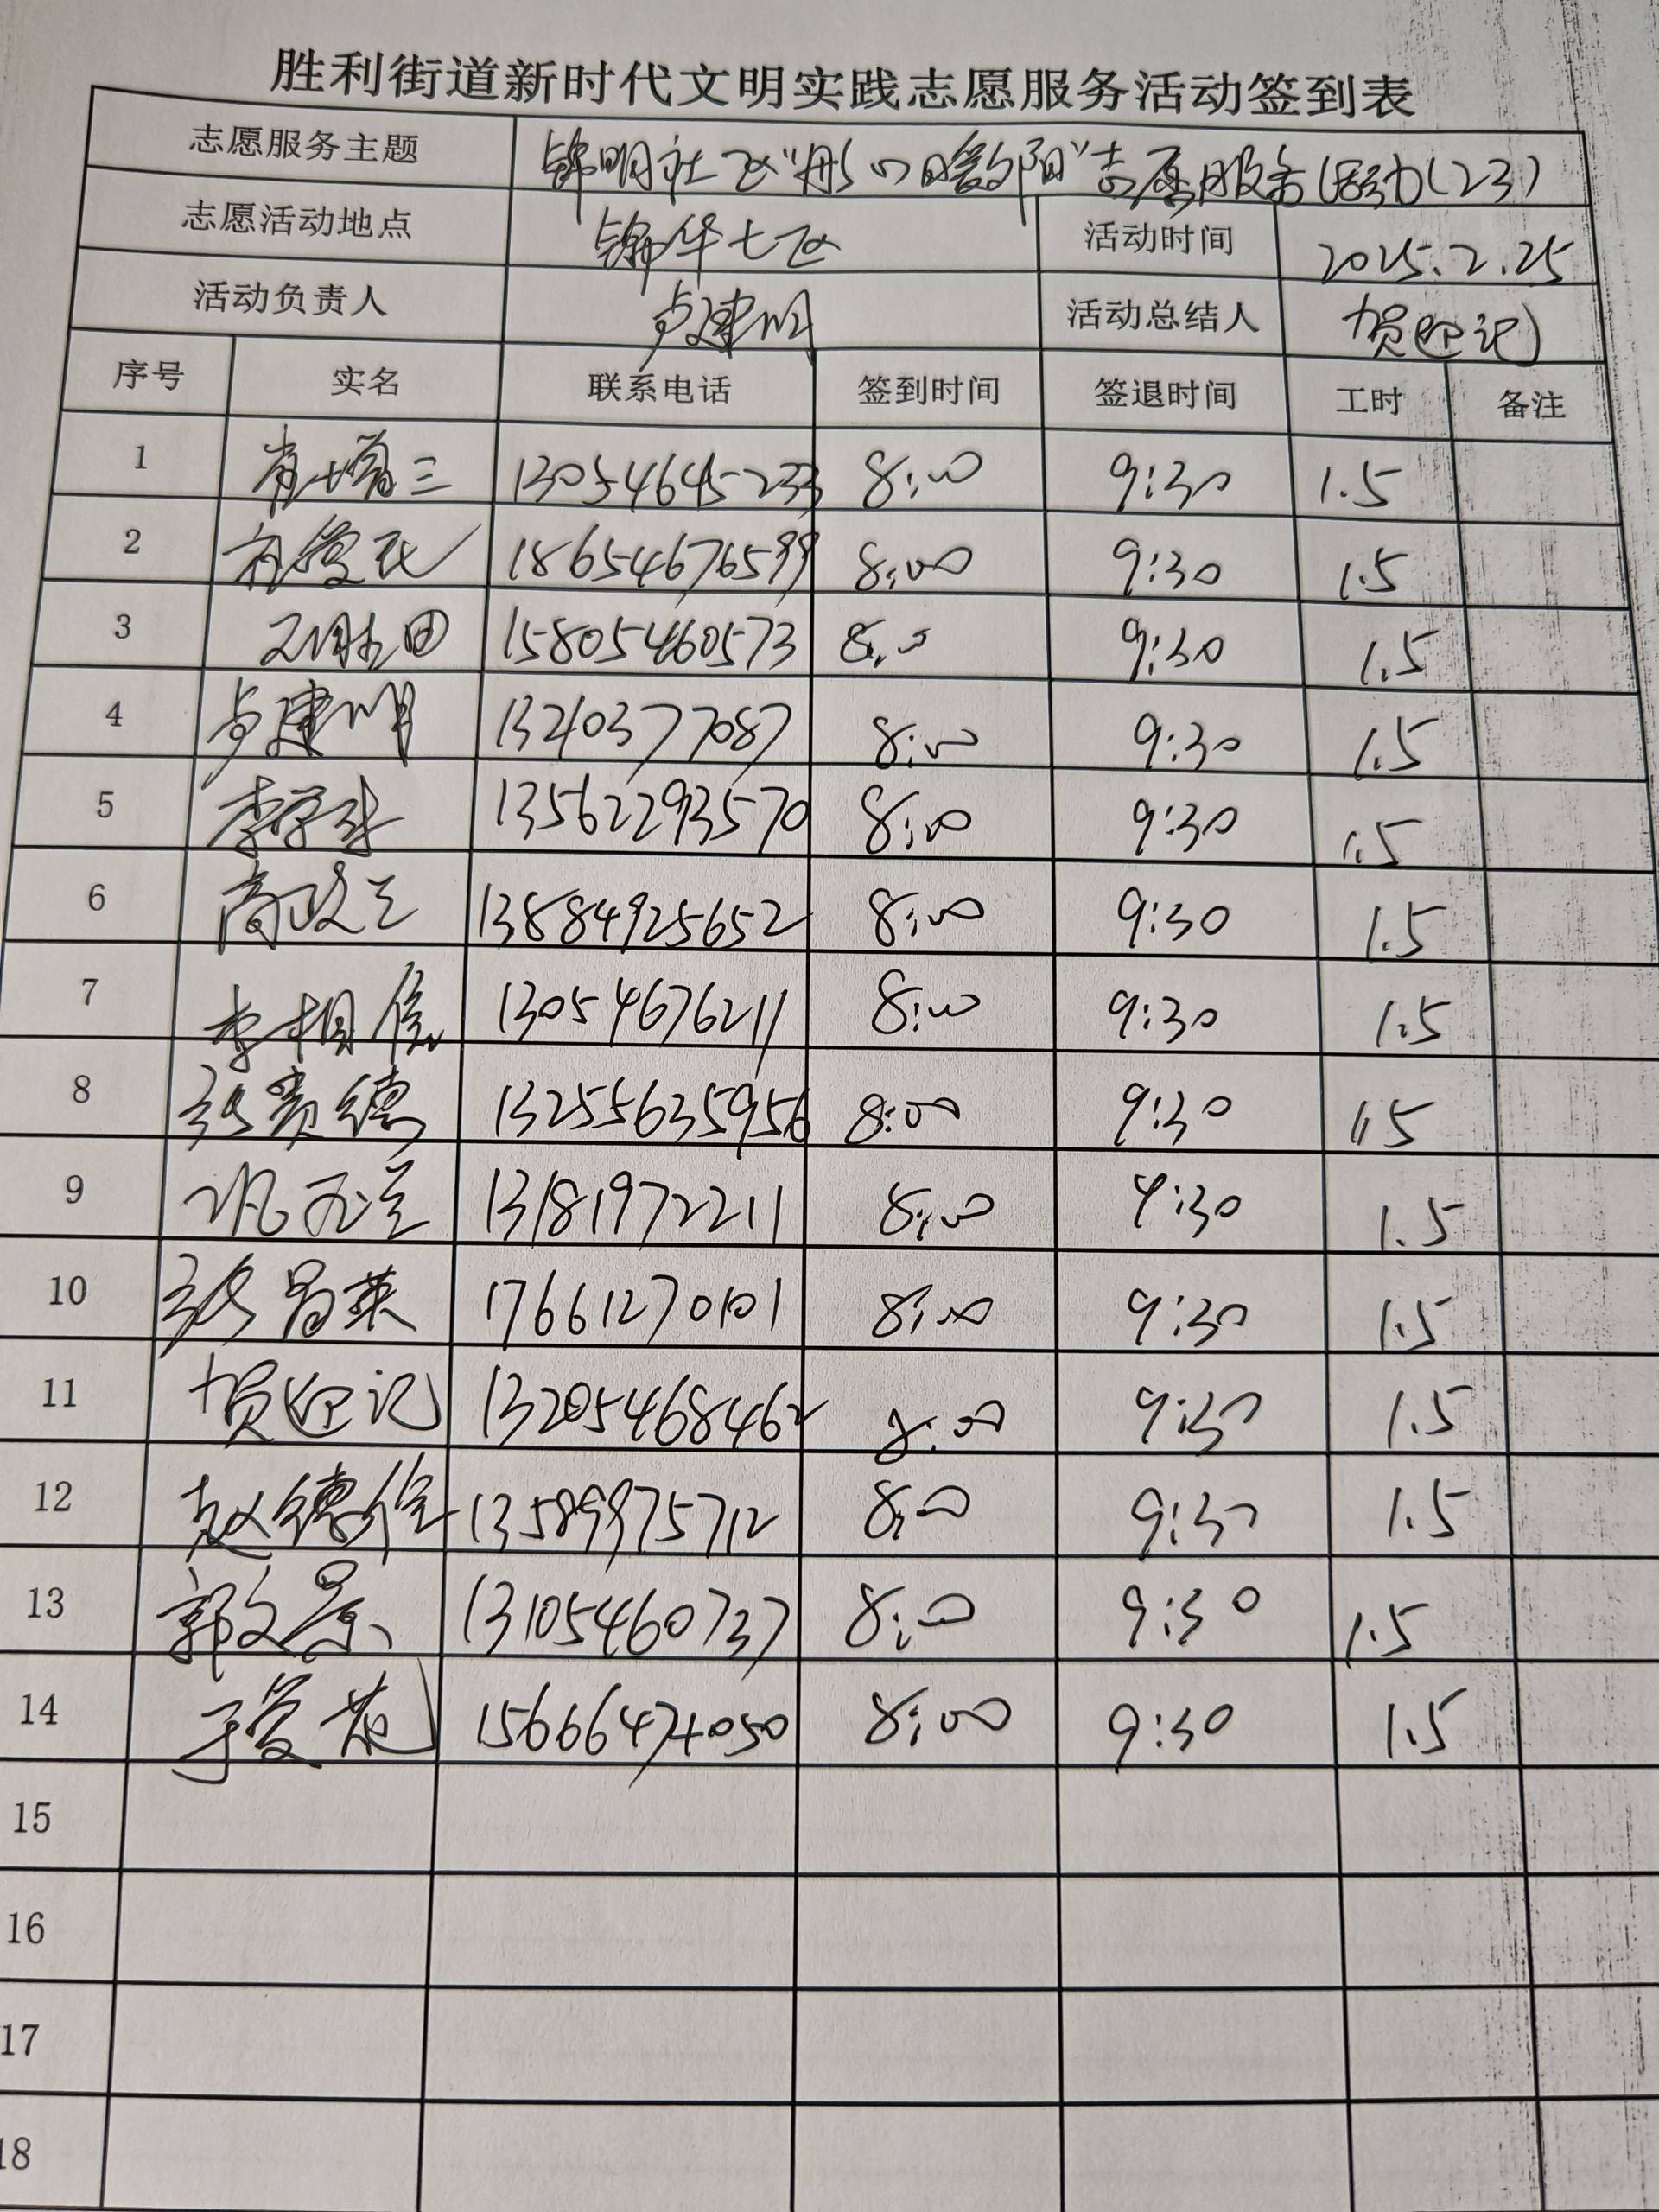 胜利街道新时代文明实践志愿服务活动签到表
志愿服务主题 锦明社区"彤心暖夕阳"志愿服务活动(23)
志愿活动地点 锦华七区 活动时间 2025.2.25
活动负责人 卢建明 活动总结人 贺迎记
序号 实名 联系电话 签到时间 签退时间 工时 备注
1 肖增三 13054645233 8:00 9:30 1.5
2 18654676599 8:00 9:30 1.5
3 15805460573 8:00 9:30 1.5
4 卢建明 13210377087 8:00 9:30 1.5
5 13562293570 8:00 9:30 1.5
6 高政兰 13884925652 8:00 9:30 1.5
7 李相俊 13054676211 8:00 9:30 1.5
8 张贵德 13255635956 8:00 9:30 1.5
9 13181972211 8:00 9:30 1.5
10 张昌英 17661270101 8:00 9:30 1.5
11 贺迎记 13205468462 8:00 9:30 1.5
12 赵德俊 13589975712 8:00 9:30 1.5
13 郭文景 13105460737 8:00 9:30 1.5
14 于爱花 15666474050 8:00 9:30 1.5
15
16
17
18